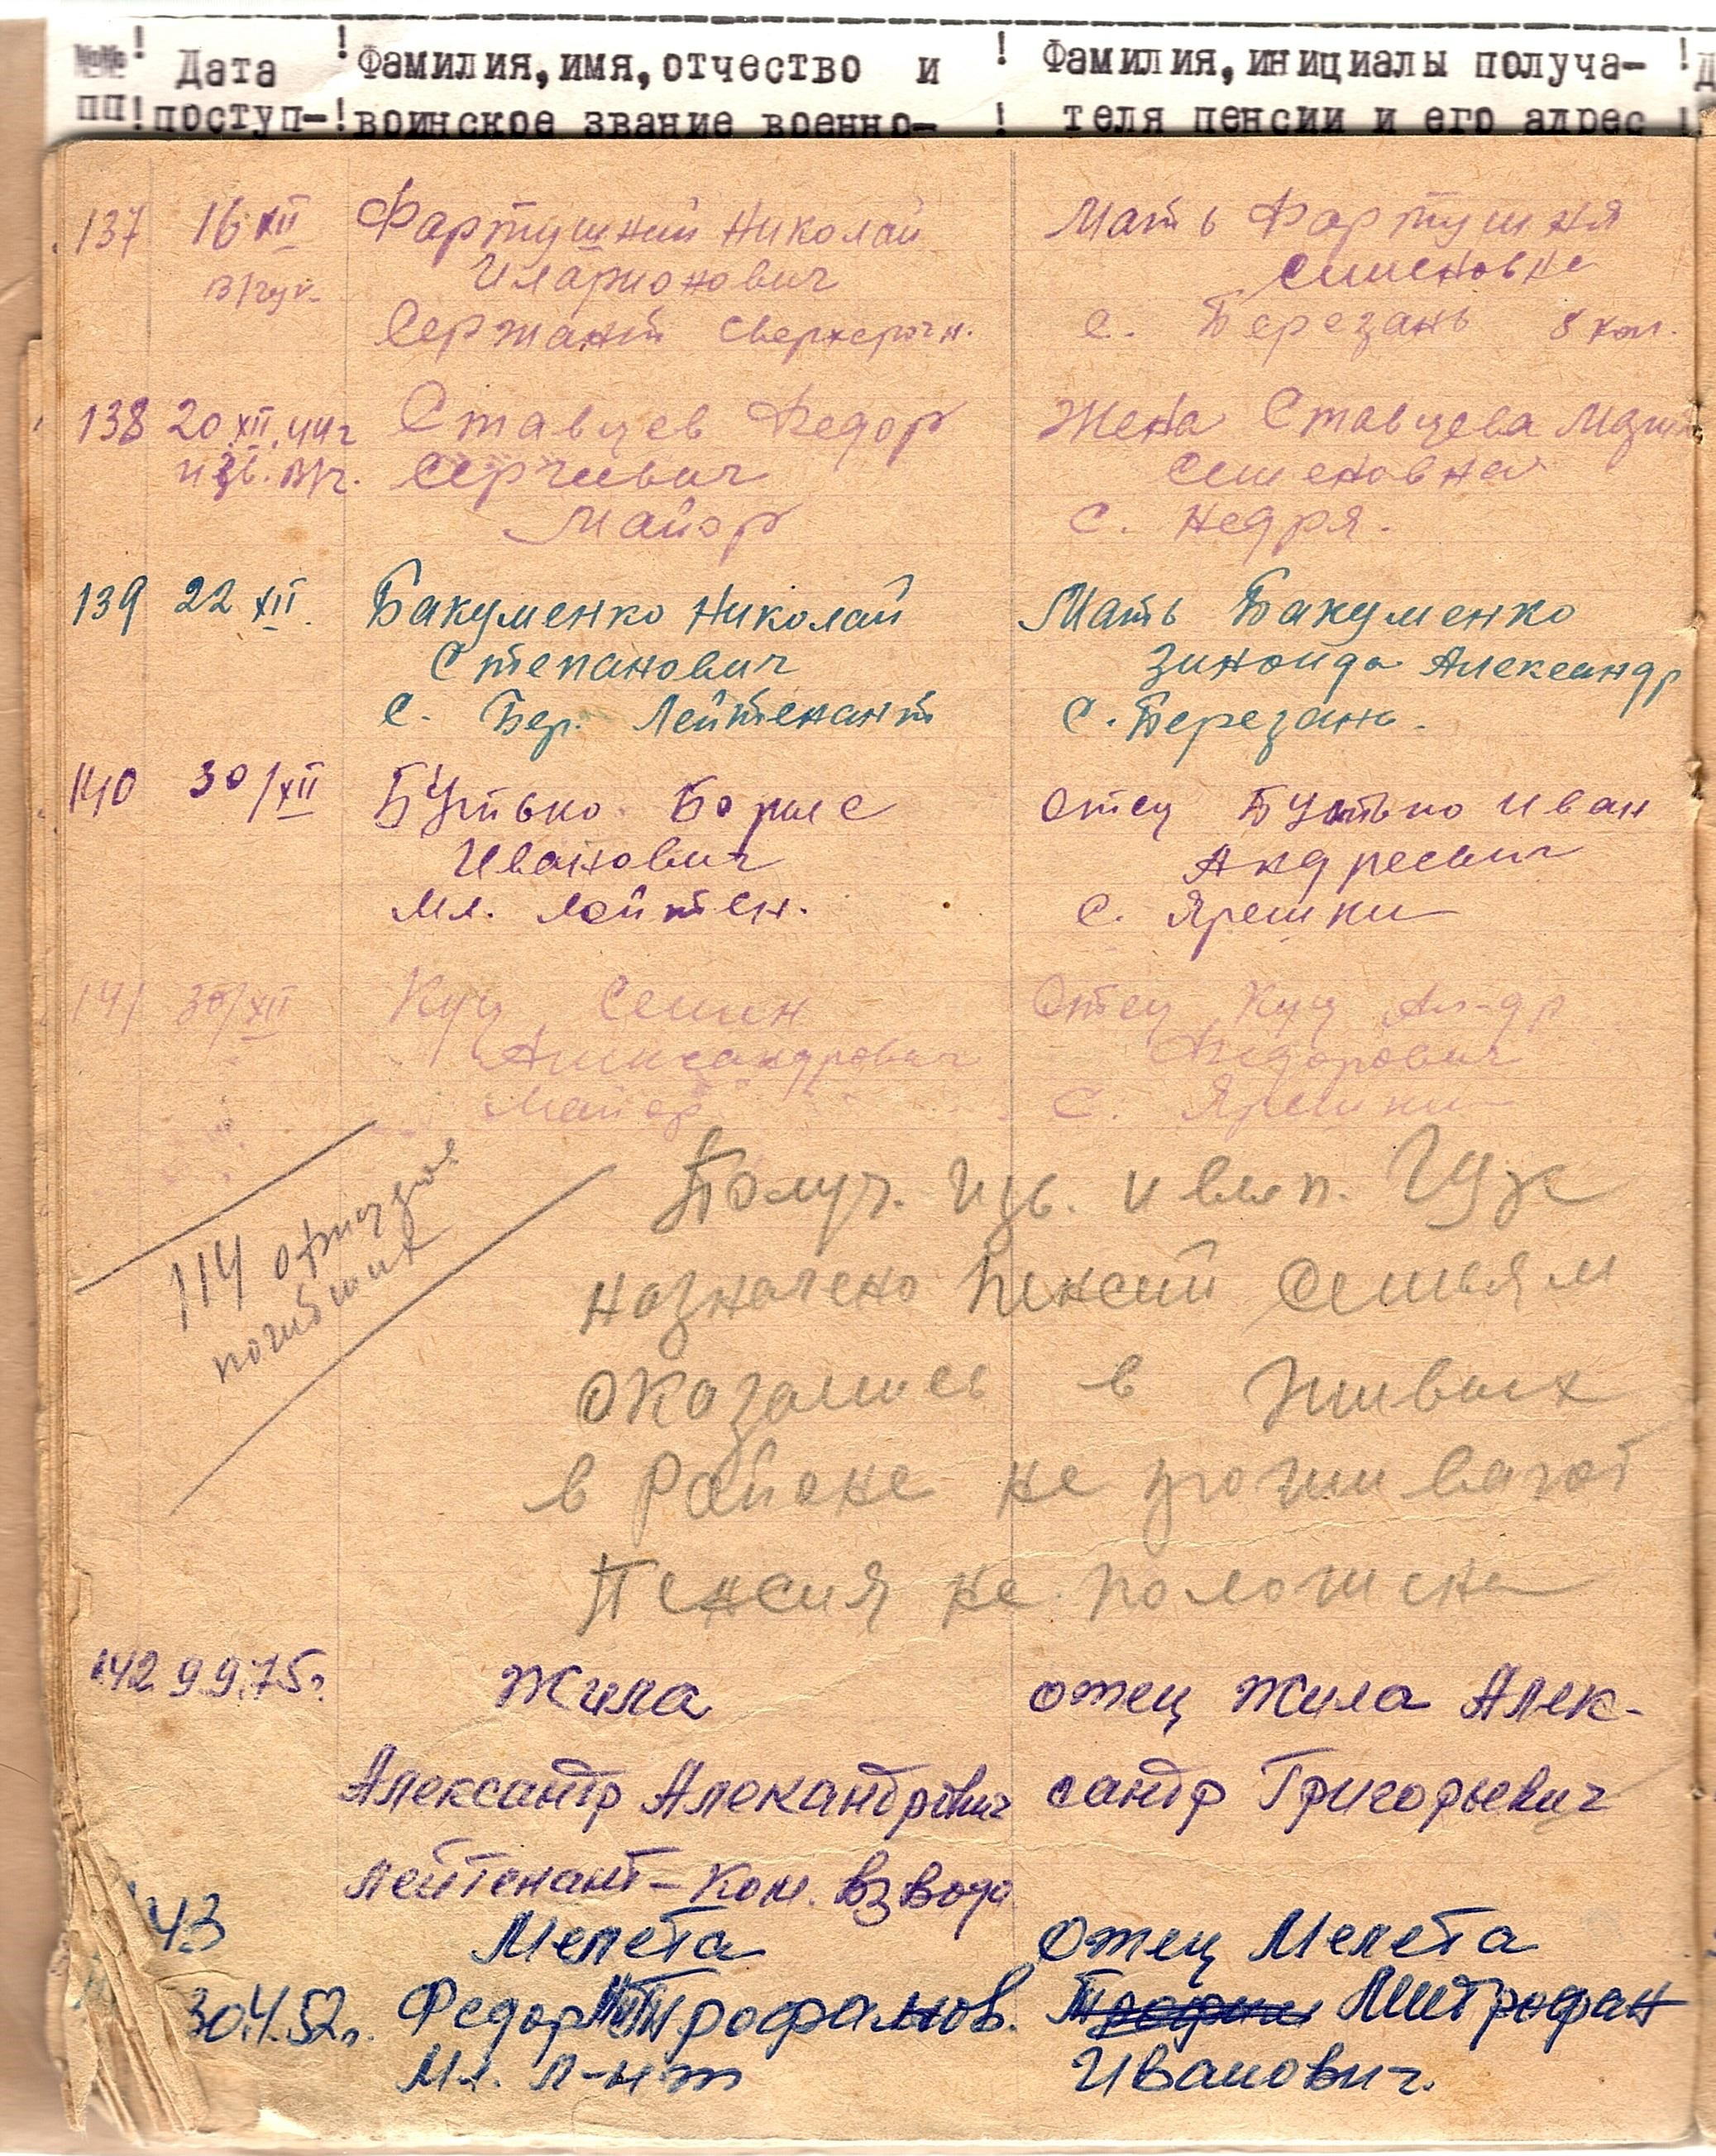 №№ ! Дата ! Фамилия, имя, отчество и ! Фамилия, инициалы получа- !
пп ! поступ- ! воинское звание военно- ! теля пенсии и его адрес !
137 16 XII Фартушний Николай Мать Фартушня
Иларионович Семеновна
Сержант сверхсрочн. с. Березань 8 кол.
138 20.XII.44г Ставцев Федор Жена Ставцева
изв. вр. Сергеевич Семеновна
Майор с. Недря.
139 22 XII. Бакуменко Николай Мать Бакуменко
Степанович Зиноида Александр
с. Бер. Лейтенант С. Березань.
140 30/XII Бутько Борис Отец Бутько Иван
Иванович Андреевич
Мл. лейтен. с. Ярешки
141 30/XII Куц Семен Отец Куц Ал-др
Александрович Федорович
Майор с. Ярешки
114 офицеров
погибших
Получ. изв. и вып.
назначено пенсий семьям
оказались в живых
в районе не проживают
Пенсия не положена
142 9.9.75г. Жила отец Жила Алек-
Александр Алекандрович сандр Григорьевич
лейтенант – Ком. взвода
43 Мелета Отец Мелета
30.4.52г. Федор Митрофанов. Митрофан
Мл. л-нт Иванович.